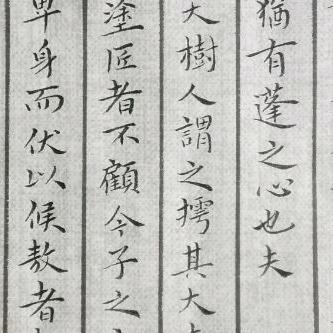 猶有蓬之心也夫
大樹人謂之樗其大
塗匠者不顧今子之
卑身而伏以候敖者